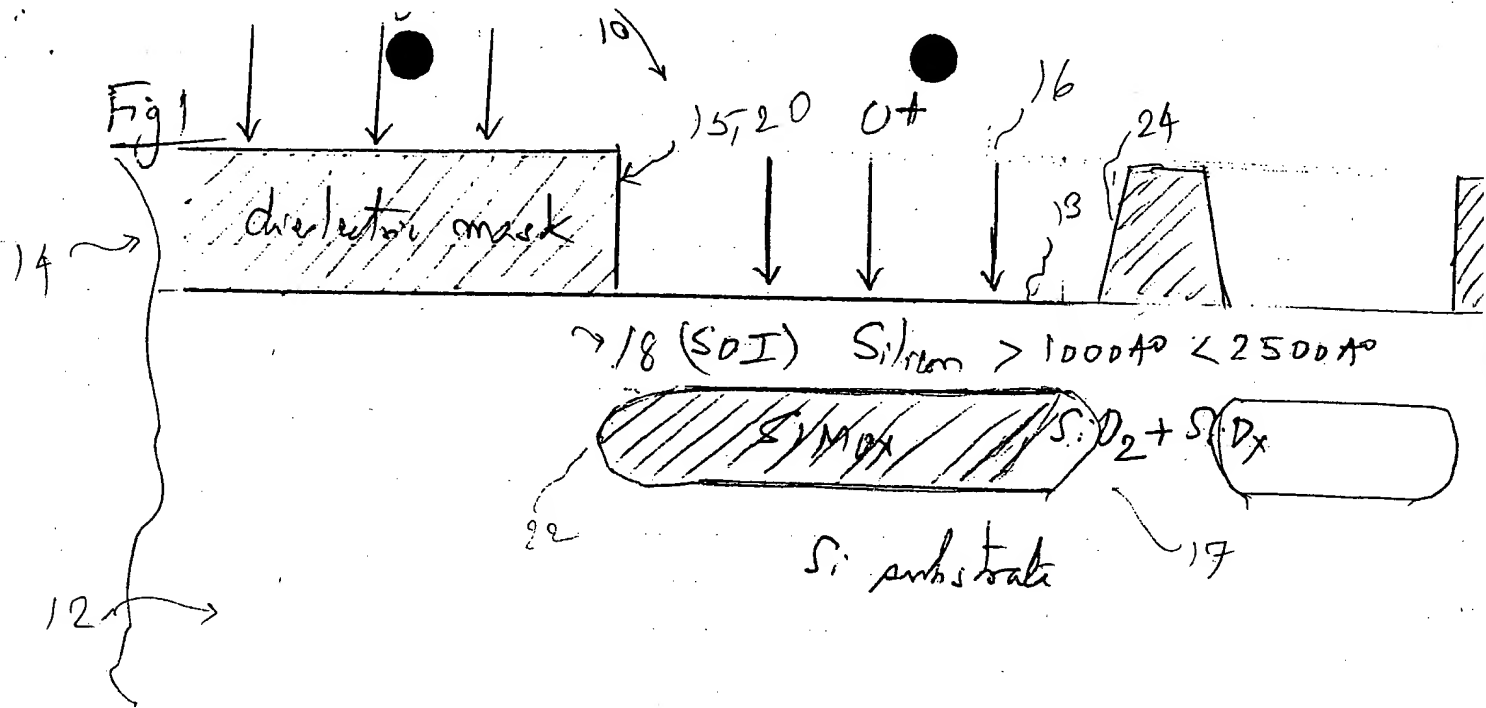 10
Fig 1
15,20 O+ 16
24
dielectric mask
13
14
18 (SOI) Silicon > 1000A° < 2500A°
SiMOX SiO2 + SiOx
22
17
Si substrate
12